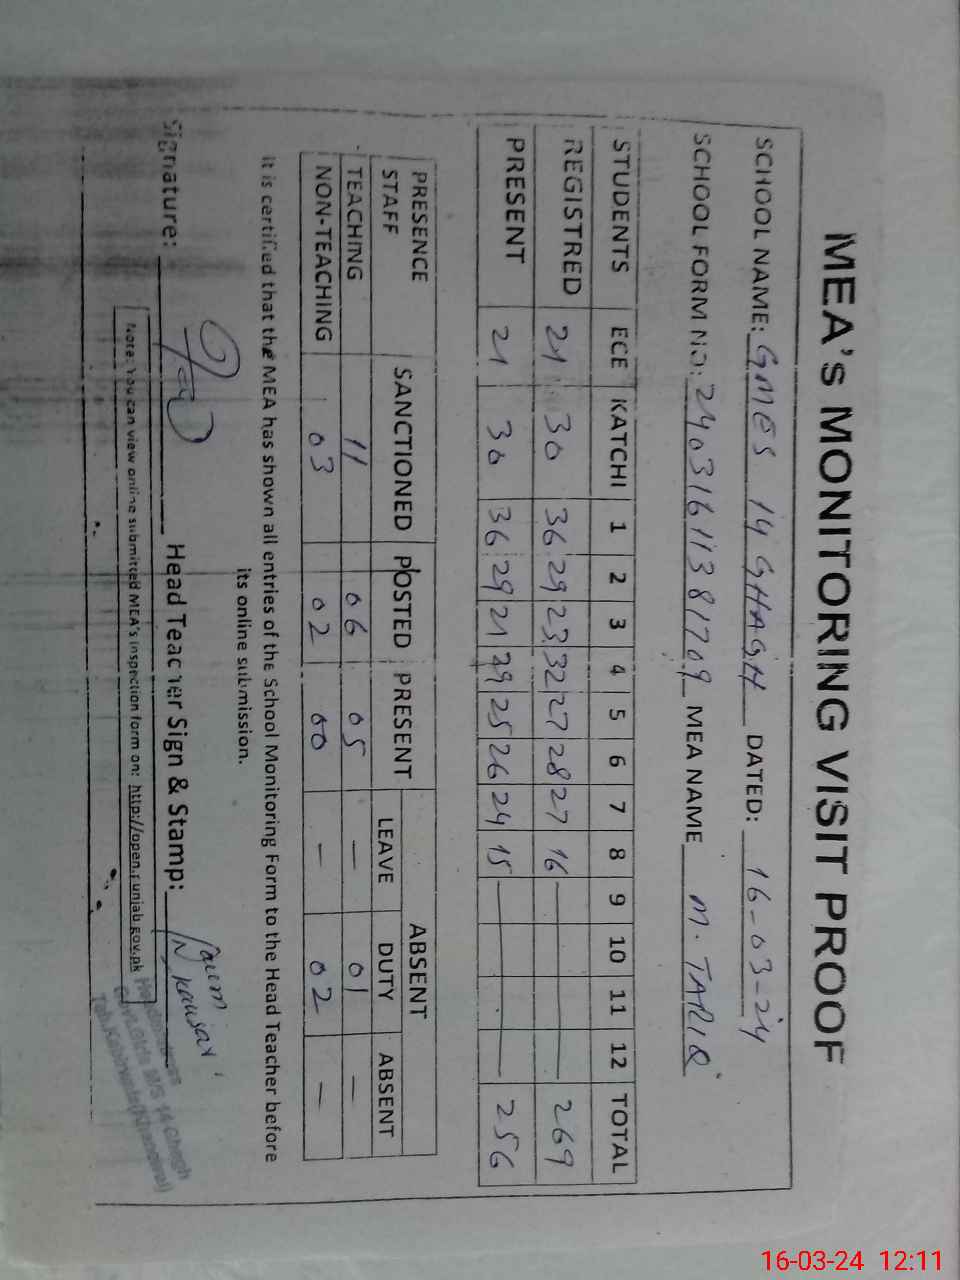 MEA's MONITORING VISIT PROOF
SCHOOL NAME: GMES 14 GHAGH DATED: 16-03-24
SCHOOL FORM NO: 24031611381709 MEA NAME M. TARIQ
STUDENTS ECE KATCHI 1 2 3 4 5 6 7 8 9 10 11 12 TOTAL
REGISTRED 21 30 36 29 23 32 27 28 27 16 269
PRESENT 21 30 36 29 21 29 25 26 24 15 256
PRESENCE STAFF SANCTIONED POSTED PRESENT ABSENT
LEAVE DUTY ABSENT
TEACHING 11 06 05 — 01 —
NON-TEACHING 03 02 00 — 02 —
It is certified that the MEA has shown all entries of the School Monitoring Form to the Head Teacher before
its online submission.
Signature: Head Teacher Sign & Stamp:
N. Kausar
Headmistress
Govt. Girls M/S 14 Ghagh
Teh. Kabirwala (Khanewal)
Note: You can view online submitted MEA's inspection form on: http://open.punjab.gov.pk
16-03-24 12:11